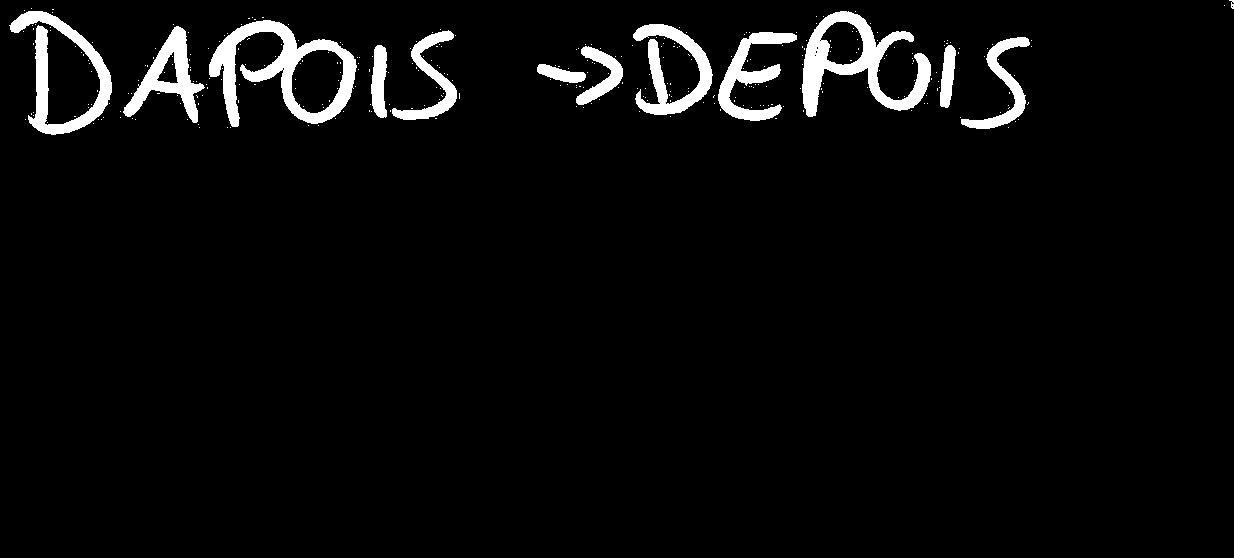 DAPOIS → DEPOIS